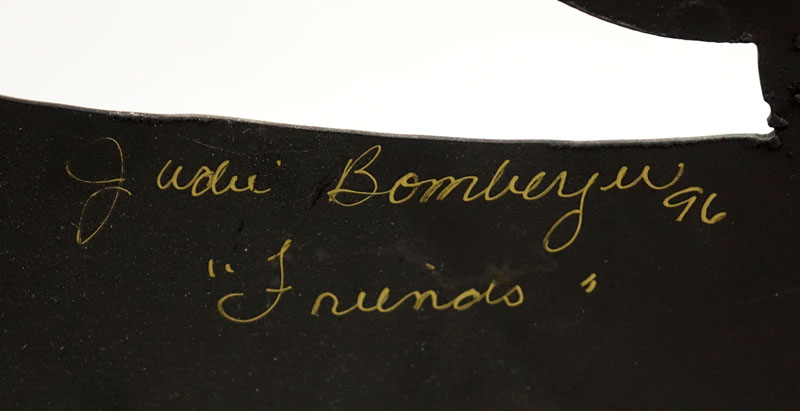 Judie Bomberger 96
"Friends"